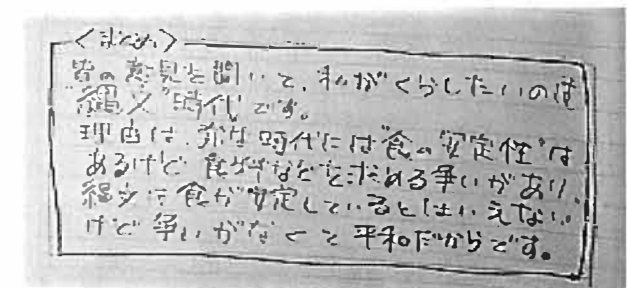 〈まとめ〉
皆の意見を聞いて、私がくらしたいのは
"縄文"時代です。
理由は、弥生時代には"食の安定性"は
あるけど食がなどを求める争いがあり、
縄文は食が安定しているとはいえない
けど争いがなくて平和だからです。